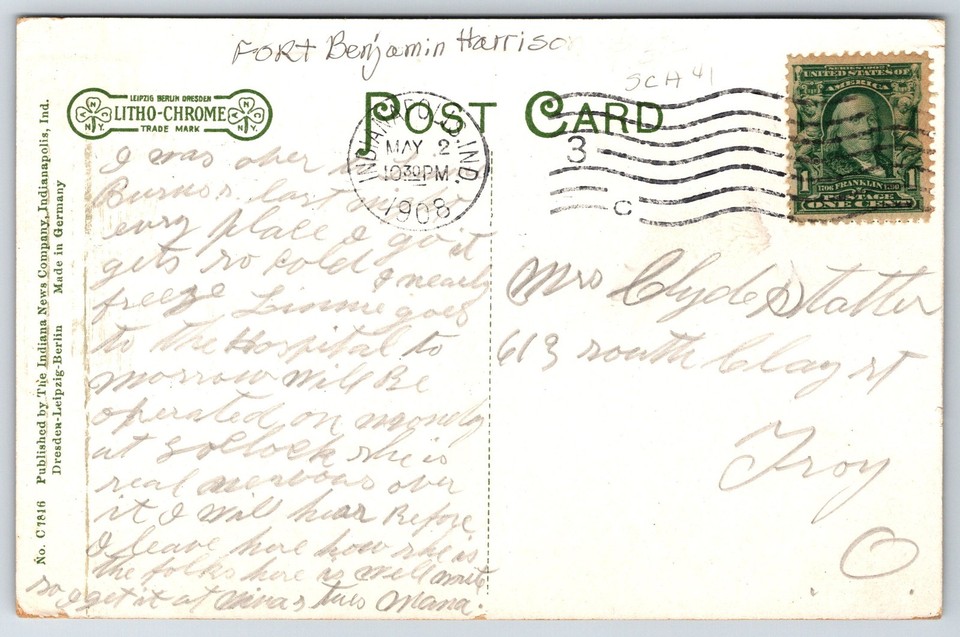 FORT Benjamin Harriso
SCH 41
LEIPZIG BERLIN DRESDEN
LITHO-CHROME
TRADE MARK
N N.Y.
N N.Y.
POST CARD
INDIANAPOLIS, IND.
MAY 2
10 30 PM
1908
3
C
SERIES 1902
UNITED STATES OF
AMERICA
1 1
1706 FRANKLIN 1790
POSTAGE
ONE CENT
No. C 7816 Published by The Indiana News Company, Indianapolis, Ind.
Dresden-Leipzig-Berlin Made in Germany
I was over
Burns last night
every place I go it
gets so cold I nearly
freeze Linnie goes
to the Hospital to
morrow will Be
operated on monday
at 3 Oclock she is
real nervous over
it I will hear Before
I leave here how she is
the folks here is well write
so I get it at Ninas tues Mama.
Mrs Clyde Statler
613 south Clay st
Troy
O